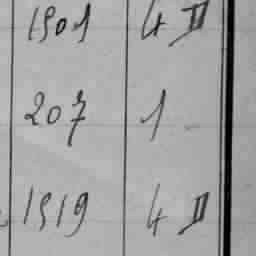 1901 4 II
207 1
1919 4 II